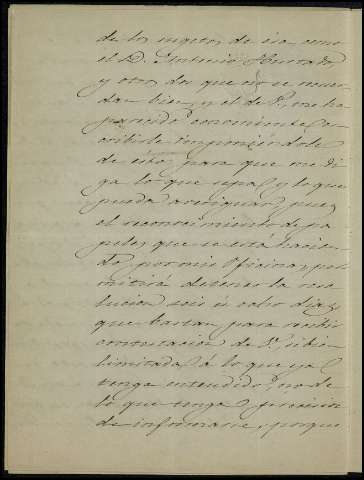 de los sugetos de esa como
el D. Antonio Hurtado
y otros dos que no se nombran
bien, y el de P. me ha
parecido conveniente es-
cribirle imponiéndole
de esto, para que me di-
ga lo que sepa, y lo que
pueda averiguar, pues
el reconocimiento de pa-
peles que se está hacien-
do por mis Oficinas, per-
mitirá detener la reso-
lucion seis ú ocho dias,
que bastan para recibir
contestacion de V. si bien
limitada á lo que ya
tenga entendido, ó no de
lo que tenga precision
de informarse, porque